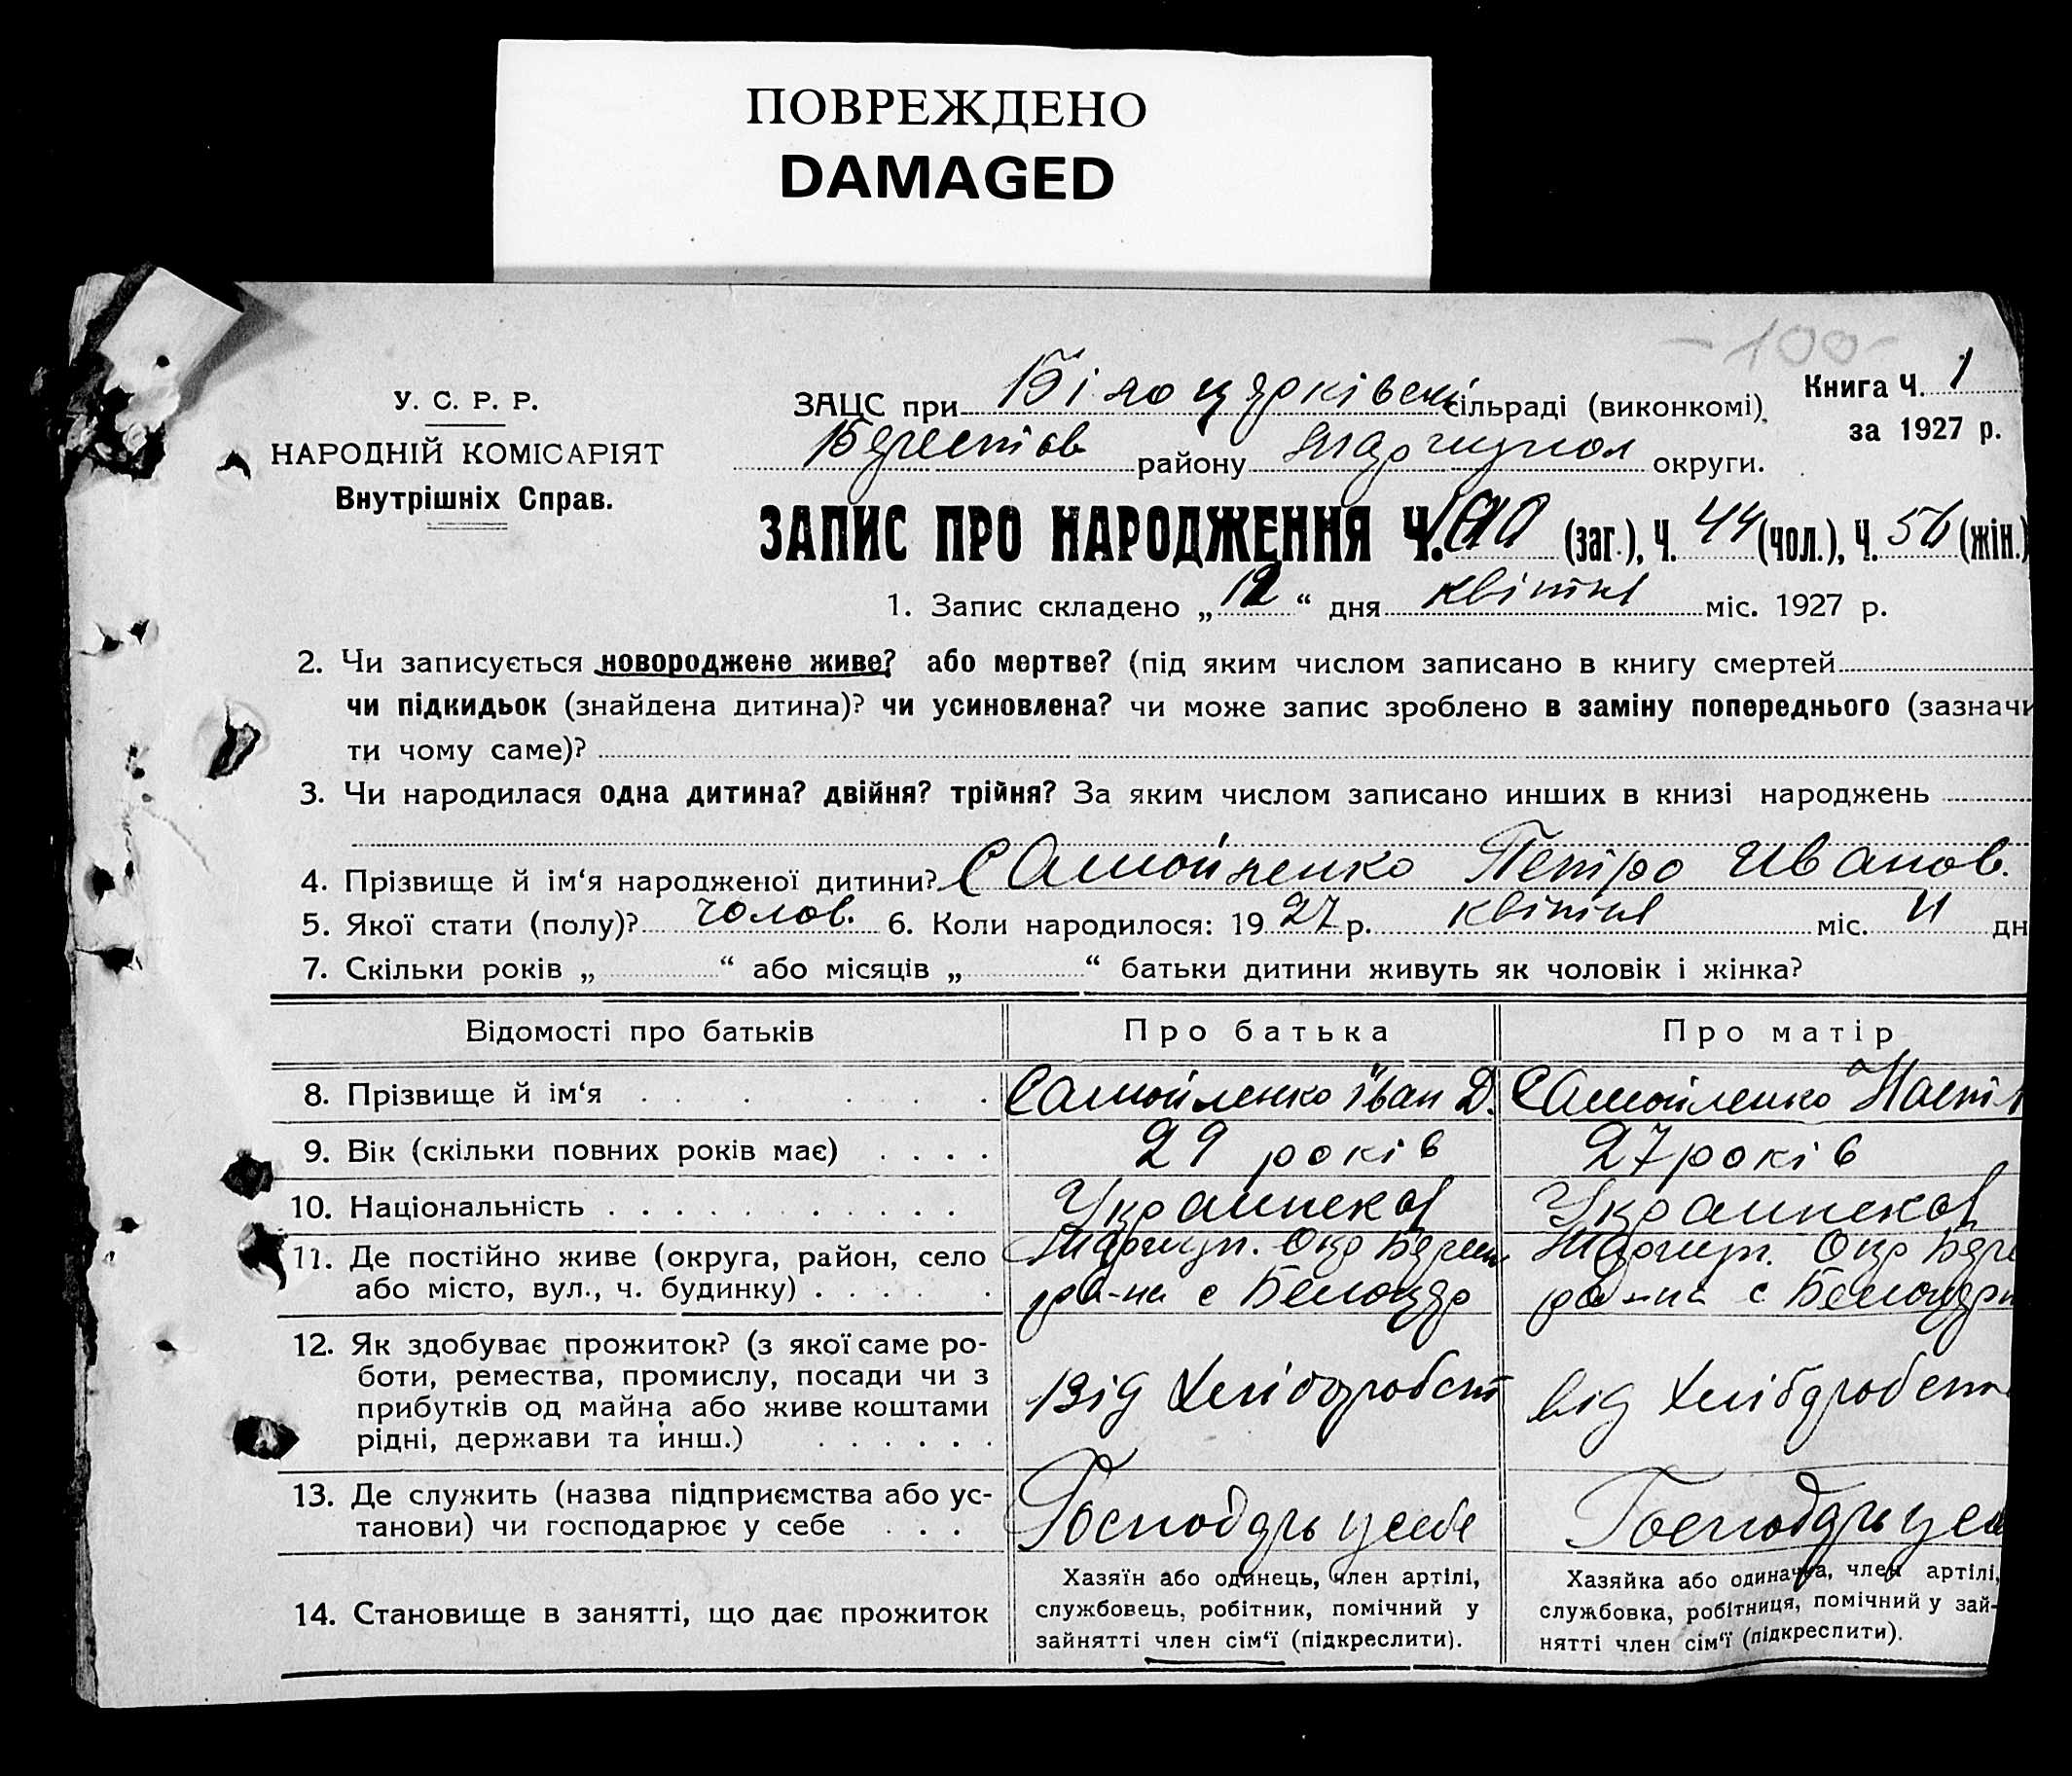 ПОВРЕЖДЕНО
DAMAGED
-100-
У. С. Р. Р.
НАРОДНІЙ КОМІСАРІЯТ
Внутрішніх Справ.
ЗАЦС при Білоцерківській сільраді (виконкомі)
Книга Ч. 1
за 1927 р.
району округи.
ЗАПИС ПРО НАРОДЖЕННЯ Ч. (заг.), Ч. 44 (чол.), Ч. 56 (жін.)
1. Запис складено „12“ дня квітня міс. 1927 р.
2. Чи записується новороджене живе? або мертве? (під яким числом записано в книгу смертей
чи підкидьок (знайдена дитина)? чи усиновлена? чи може запис зроблено в заміну попереднього (зазначи
ти чому саме)?
3. Чи народилася одна дитина? двійня? трійня? За яким числом записано инших в книзі народжень
4. Прізвище й ім‘я народженої дитини? Самойленко Петро Иванов.
5. Якої стати (полу)? чолов. 6. Коли народилося: 1927 р. квітня міс. 11 дн
7. Скільки років „ “ або місяців „ “ батьки дитини живуть як чоловік і жінка?
Відомості про батьків Про батька Про матір
8. Прізвище й ім‘я Самойленко Іван Д. Самойленко Наст
9. Вік (скільки повних років має) 29 років 27 років
10. Національність
11. Де постійно живе (округа, район, село
або місто, вул., ч. будинку)
12. Як здобуває прожиток? (з якої саме ро-
боти, ремества, промислу, посади чи з
прибутків од майна або живе коштами
рідні, держави та инш.)
від Хліборобст від Хліборобст
13. Де служить (назва підприємства або ус-
танови) чи господарює у себе
Господарь у себе Господарь у се
14. Становище в занятті, що дає прожиток
Хазяїн або одинець, член артілі,
службовець, робітник, помічний у
зайнятті член сім‘ї (підкреслити).
Хазяйка або одиначка, член артілі,
службовка, робітниця, помічний у зай-
нятті член сім‘ї (підкреслити).